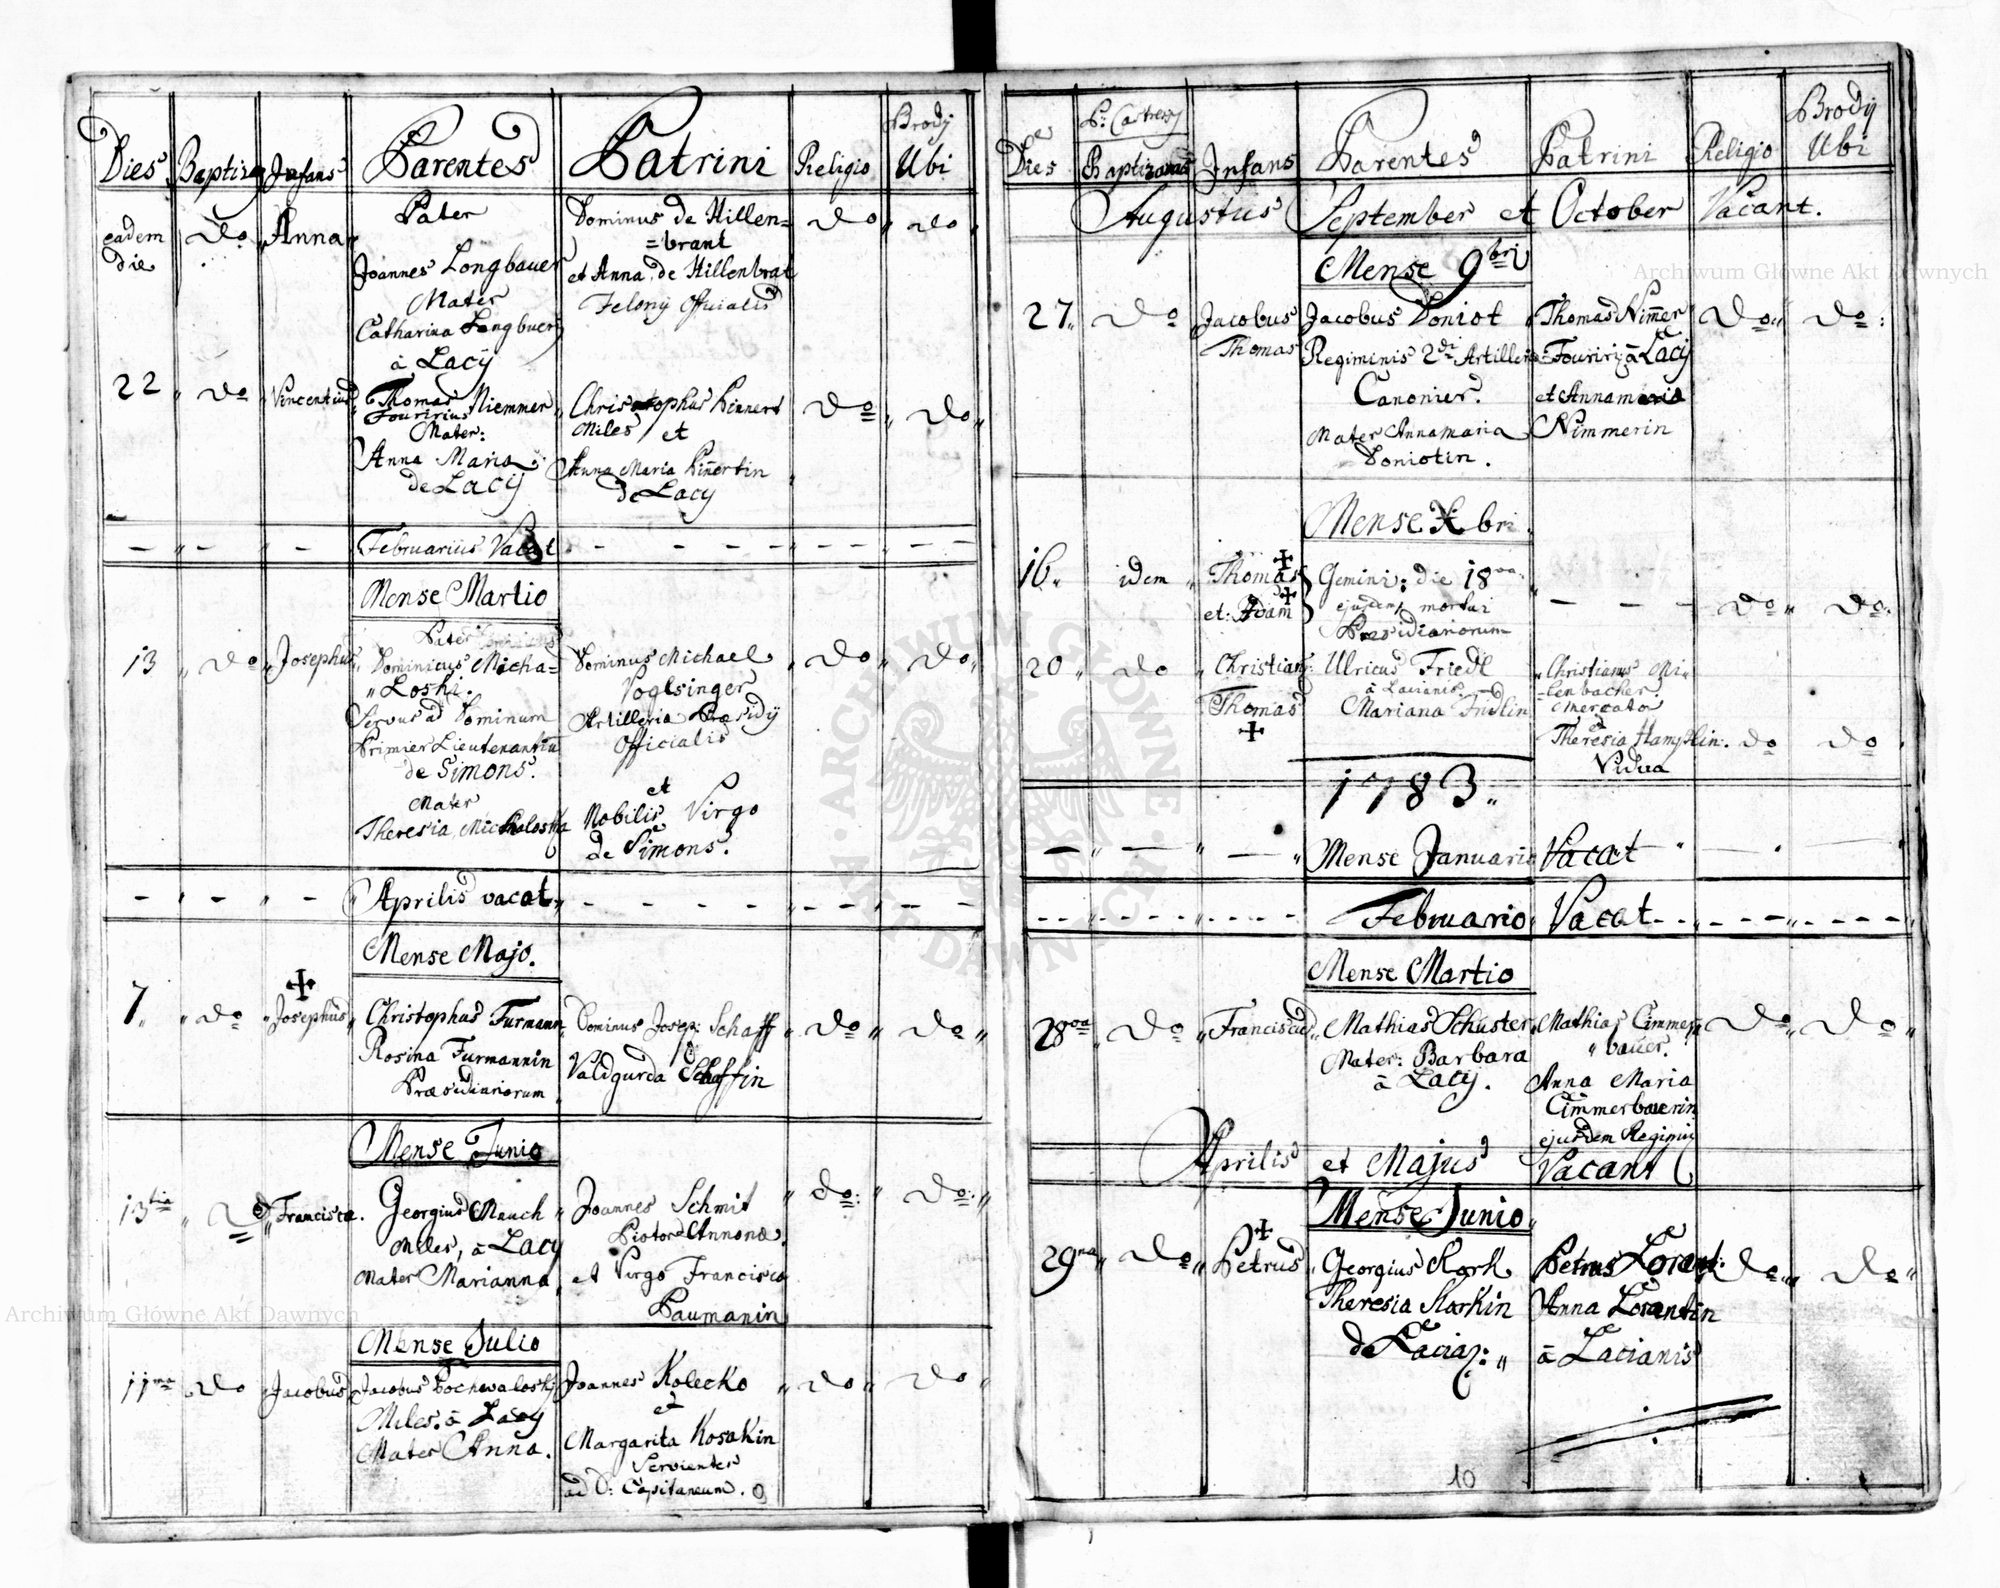 Dies
Baptiz
Infans
Parentes
Patrini
Religio
Brody
Ubi
eadem
die
Do
Anna
Pater
Joannes Longbauer
Mater
Catharina Langbuery
à Lacÿ
Dominus de Hillen=
=brant
et Anna de Hillenbrat
Felony Officialis
do
do
22
do
Vincentius
Thomas Niemmer
Fouririus
Mater:
Anna Maria
de Lacÿ
Christophus Pinnert
Miles et
Anna Maria Piñertin
de Lacÿ
do
do
Februarius Vacat
Mense Martio
13
do
Josephus
Pater
Dominicus Micha=
Loski.
Servus ad Dominum
Primier Lieutenantiu
de Simons.
Mater
Theresia Michaloska
Dominus Michael
Voglsinger
Artilleria Præsidÿ
Officialis
et
Nobilis Virgo
de Simons.
do
do
Aprilis vacat
Mense Majo.
7
do
Josephus
Christophus Furmann
Rosina Furmannin
Præsidiariorum
Dominus Josep: Schaff
Valdgurda Schaffin
do
do
Mense Junio
13tia
Do
Francisca.
Georgius Mauch
Miles, à Lacy
Mater Marianna
Joannes Schmit
Pistor Annonæ.
et Virgo Francisca
Paumanin
do:
do:
Mense Julio
11ma
do
Jacobus
Jacobus Pochwaloskÿ
Miles. à Lacy
Mater Anna.
Joannes Kolecko
et
Margarita Kosakin
Servientes
ad D: Capitaneum.
do
do
Dies
P: Castrens
Baptizavit
Infans
Parentes
Patrini
Religio
Brodÿ
Ubi
Augustus September et October Vacant.
Mense 9bri
27
Do
Jacobus
Thomas
Jacobus Doniot
Regiminis 2di Artilleri
Canonier.
Mater Annamaria
Doniotin.
Thomas Nim̃er
Fourir à Lacÿ
et Annamaria
Nimmerin
Do
Do:
Mense Xbri.
16
idem
Thomas
et: Adam
Gemini: die 18va
ejusdem mortui
Præsidiariorum
do
do:
20
do
Christian:
Thomas
Ulricus Friedl
à Lacianis.
Mariana Fridlin
Christianus Mi
lenbacher.
Mercator
Theresia Hamplin:
Vidua
do
do
1783.
Mense Januario Vacat
Februario Vacat
Mense Martio
28va
Do
Franciscus
Mathias Schuster
Mater: Barbara
à Lacy.
Mathias Cimmer
bauer.
Anna Maria
Cimmerbauerin
ejusdem Regiminis
Do
Do
Aprilis et Majus Vacant
Mense Junio
29na
Do
Petrus
Georgius Stork
Theresia Storkin
de Lacia:
Petrus Lorent:
Anna Lorantin
à Lacianis
do
do
10
Archiwum Główne Akt Dawnych
Archiwum Główne Akt Dawnych
ARCHIWUM GŁÓWNE AKT DAWNYCH